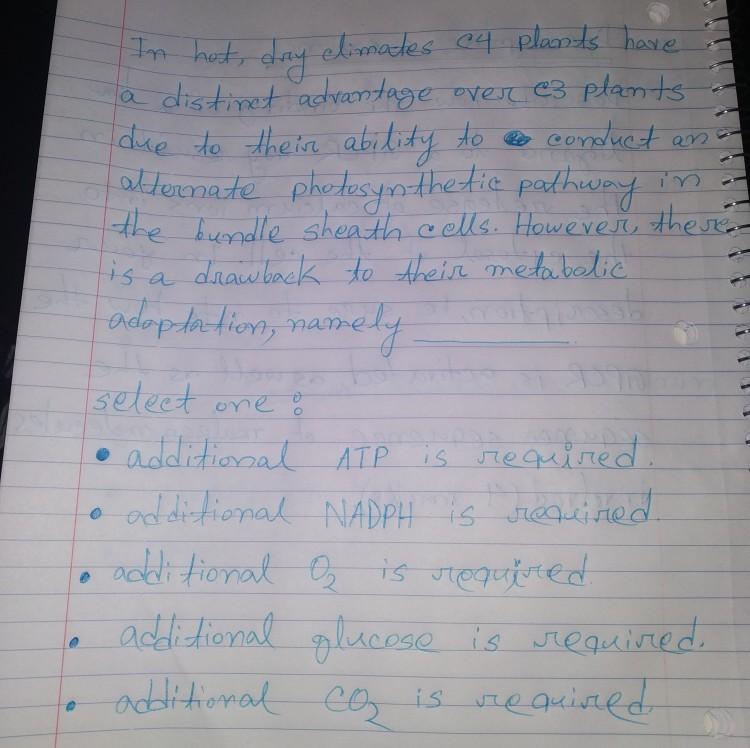 In hot, dry climates C4 plants have
a distinct advantage over C3 plants
due to their ability to conduct an
alternate photosynthetic pathway in
the bundle sheath cells. However, there
is a drawback to their metabolic
adaptation, namely __________.
select one :
• additional ATP is required.
• additional NADPH is required.
• additional O2 is required.
• additional glucose is required.
• additional CO2 is required.